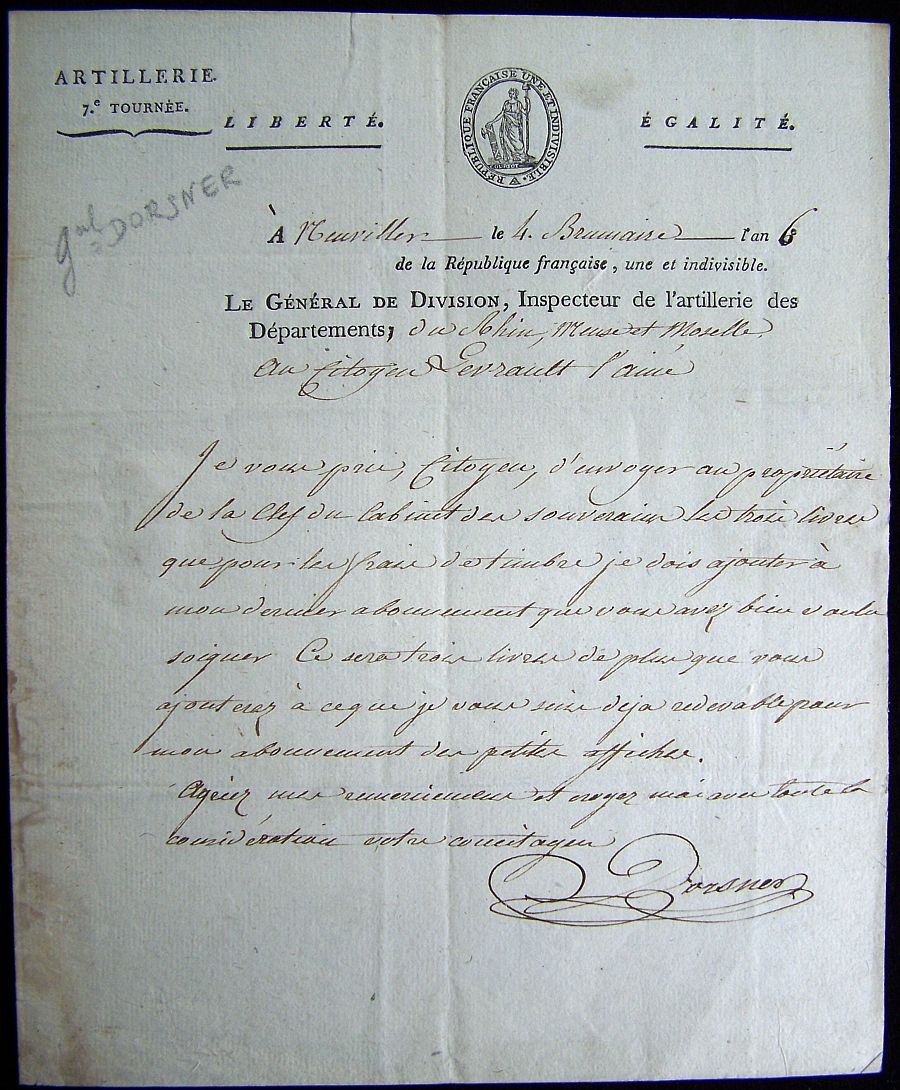 ARTILLERIE.
7.e TOURNÉE.
LIBERTÉ.
RÉPUBLIQUE FRANÇAISE UNE ET INDIVISIBLE.
ÉGALITÉ.
gal DORSNER
À Neuviller le 4. Brumaire l'an 6
de la République française, une et indivisible.
LE GÉNÉRAL DE DIVISION, Inspecteur de l'artillerie des
Départements, du Rhin, Meuse et Moselle.
au Citoyen Levrault l'ainé
Je vous prie, Citoyen, d'envoyer au propriétaire
de la Clef du Cabinet des souverains les trois livres
que pour les frais de timbre je dois ajouter à
mon dernier abonnement que vous avez bien voulu
soigner. Ce sera trois livres de plus que vous
ajouterez à ce que je vous suis deja redevable pour
mon abonnement des petites affiches.
Agréez mes remerciemens et croyez moi avec toute la
considération votre concitoyen
Dorsner